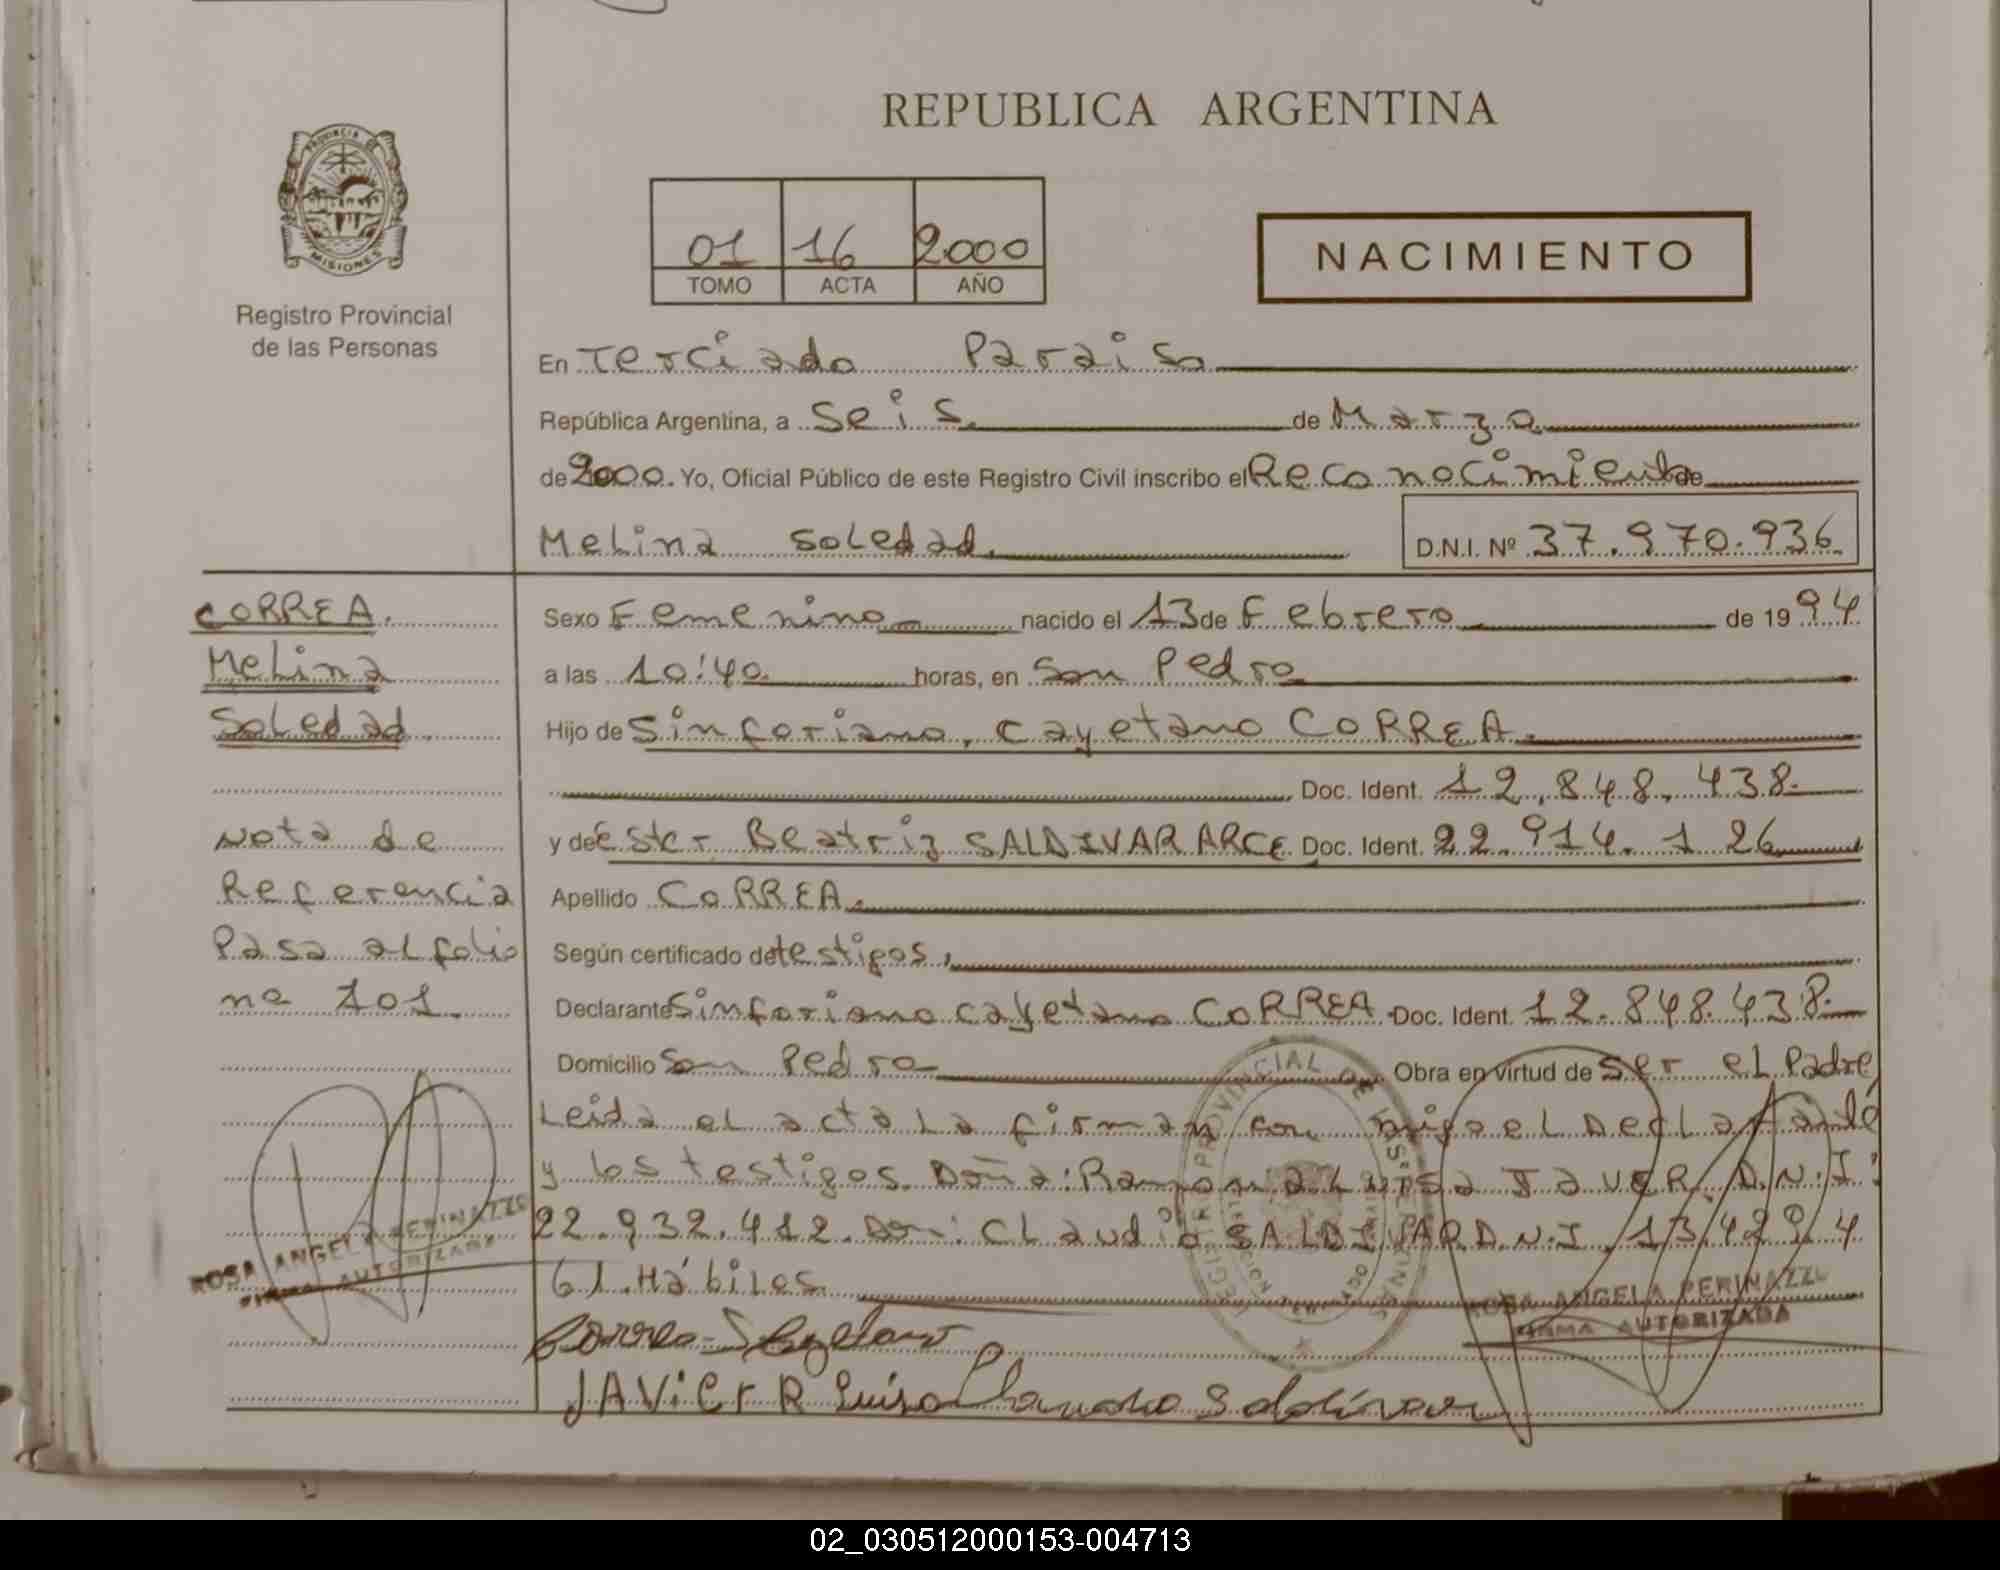 REPUBLICA ARGENTINA
PROVINCIA DE
MISIONES
Registro Provincial
de las Personas
01 16 2000
TOMO ACTA AÑO
NACIMIENTO
En Terciado Paraiso
República Argentina, a Seis de Marzo
de 2000. Yo, Oficial Público de este Registro Civil inscribo el Reconocimiento de
Melina Soledad. D.N.I. Nº 37.970.936
CORREA.
Melina
Soledad.
Nota de
Referencia
Pasa al folio
nº 101.
ROSA ANGELA PERINAZZO
FIRMA AUTORIZADA
Sexo Femenino nacido el 13 de Febrero de 1994
a las 10:40 horas, en San Pedro
Hijo de Sinforiano, Cayetano CORREA.
Doc. Ident. 12.848.438.
y de Ester Beatriz SALDIVAR ARCE Doc. Ident. 22.914.126
Apellido CORREA.
Según certificado de testigos,
Declarante Sinforiano Cayetano CORREA. Doc. Ident. 12.848.438.
Domicilio San Pedro Obra en virtud de Ser el Padre
Leida el acta La firman con migo el Declarante
y los testigos. Doña: Ramona Luisa JaVER. D.N.I:
22.932.412. Don: Claudio SALDIVAR D.N.I. 13.429.4
61. Hábiles.
Correa S Cayetano
JAViEr R Luisa Claudio Saldivar
ROSA ANGELA PERINAZZO
FIRMA AUTORIZADA
02_030512000153-004713